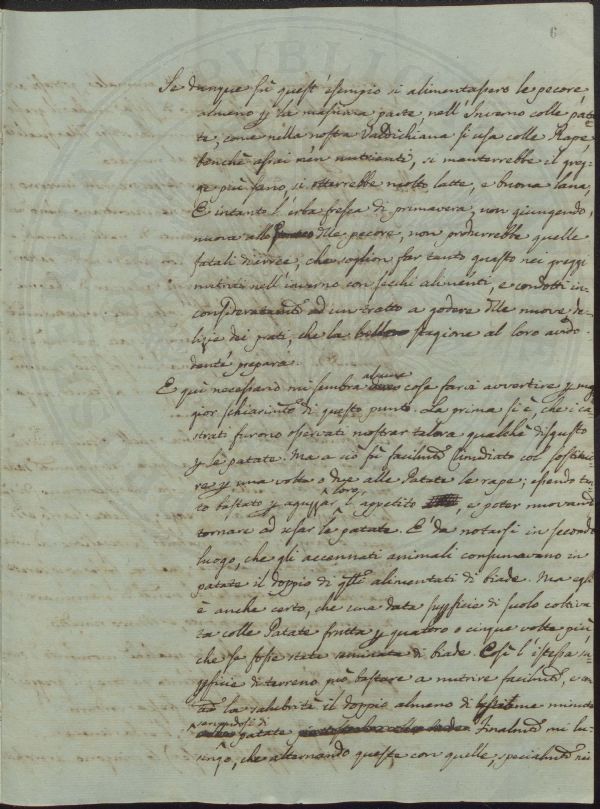 6
Se dunque sù quest' esempio si alimentassero le pecore
almeno p la massima parte nell'Inverno colle pata
te, come nella nostra Valdichiana si usa colle Rape
benchè assai men nutrienti, si manterrebbe il greg-
ge più sano, si otterrebbe molto latte, e buona lana,
E intanto l'erba fresca di primavera, non giungendo,
nuova alle delle pecore, non produrrebbe quelle
fatali diarree, che soglion far tanto guasto nei greggi
nutriti nell'inverno con secchi alimenti, e condotti in-
consideratamte ad un tratto a godere delle nuove de-
lizie dei prati, che la stagione al loro avido
dente prepara.
E quì necessario mi sembra alcune cose farvi avvertire p mag
gior schiarimto di questo punto. La prima si è, che i ca-
strati furono osservati mostrar talora qualche disgusto
p le patate. Ma a ciò fù facilmte rimediato col sostitui-
re p una volta o due alle Patate le rape; essendo tan-
to bastato p aguzzar loro l'appetito, e poter nuovamte
tornare ad usar le patate. E' da notarsi in secondo
luogo, che gli accennati animali consumavano in
patate il doppio di qlli alimentati di biade. Ma egli
è anche certo, che una data supficie di suolo coltiva
ta colle Patate frutta p quattro o cinque volte più
che se fosse stata seminata di biade. Così l'istessa su-
pficie di terreno può bastare a nutrire facilmte, e con
tutta la salubrità il doppio almeno di bestiame minuto
servendosi di patate Finalmte mi lu-
singo, che alternando queste con quelle, specialmte nei